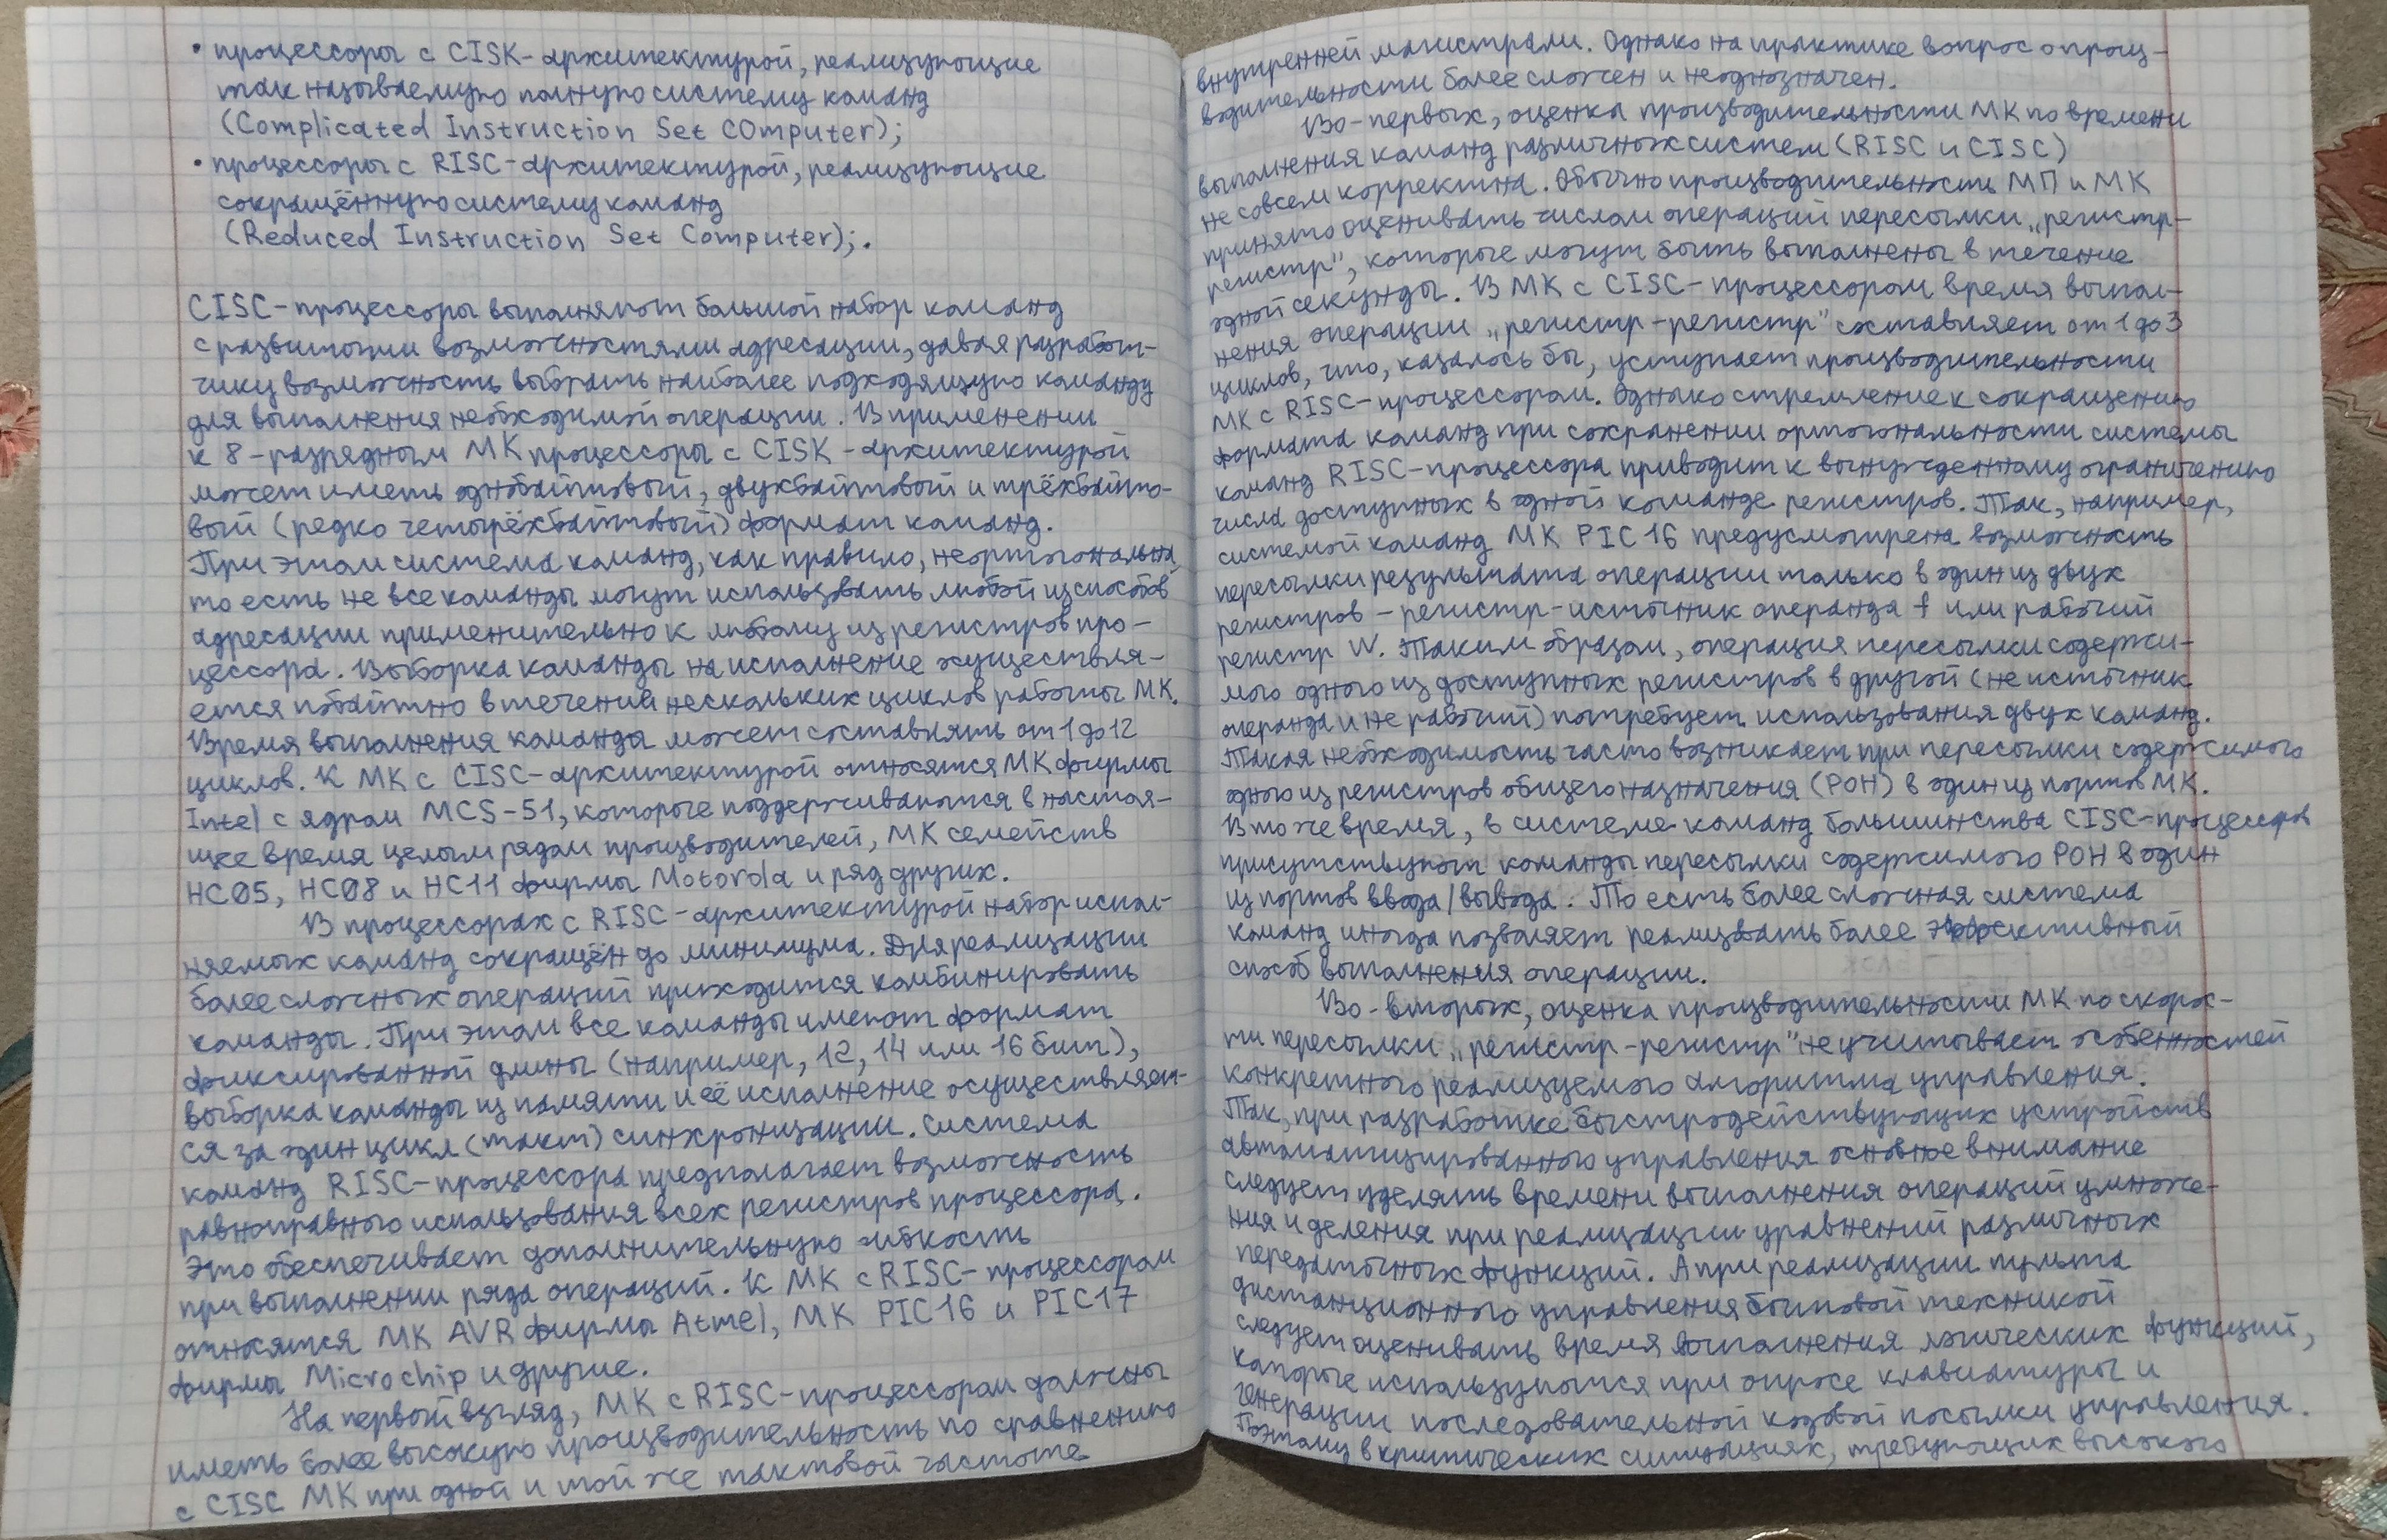 • процессоры с CISK-архитектурой, реализующие
так называемую полную систему команд
(Complicated Instruction Set COmputer);
• процессоры с RISC-архитектурой, реализующие
сокращённую систему команд
(Reduced Instruction Set Computer);.
CISC-процессоры выполняют большой набор команд
с развитыми возможностями адресации, давая разработ-
чику возможность выбрать наиболее подходящую команду
для выполнения необходимой операции. В применении
к 8-разрядным МК процессоры с CISK-архитектурой
может иметь однобайтовый, двухбайтовый и трёхбайто-
вый (редко четырёхбайтовый) формат команд.
При этом система команд, как правило, неортогональна,
то есть не все команды могут использовать любой из способов
адресации применительно к любому из регистров про-
цессора. Выборка команды на исполнение осуществля-
ется побайтно в течений нескольких циклов работы МК.
Время выполнения команды может составлять от 1 до 12
циклов. К МК с CISC-архитектурой относятся МК фирмы
Intel с ядром MCS-51, которые поддерживаются в настоя-
щее время целым рядом производителей, МК семейств
HC05, HC08 и HC11 фирмы Motorola и ряд других.
В процессорах с RISC-архитектурой набор испол-
няемых команд сокращён до минимума. Для реализации
более сложных операций приходится комбинировать
команды. При этом все команды имеют формат
фиксированной длины (например, 12, 14 или 16 бит),
выборка команды из памяти и её исполнение осуществляет-
ся за один цикл (такт) синхронизации. Система
команд RISC-процессора предполагает возможность
равноправного использования всех регистров процессора.
Это обеспечивает дополнительную гибкость
при выполнении ряда операций. К МК с RISC-процессором
относятся МК AVR фирмы Atmel, МК PIC16 и PIC17
фирмы Microchip и другие.
На первый взгляд, МК с RISC-процессором должны
иметь более высокую производительность по сравнению
с CISC МК при одной и той же тактовой частоте
внутренней магистрали. Однако на практике вопрос о произ-
водительности более сложен и неоднозначен.
Во-первых, оценка производительности МК по времени
выполнения команд различных систем (RISC и CISC)
не совсем корректна. Обычно производительность МП и МК
принято оценивать числом операций пересылки „регистр-
регистр", которые могут быть выполнены в течение
одной секунды. В МК с CISC-процессором время выпол-
нения операции „регистр-регистр" составляет от 1 до 3
циклов, что, казалось бы, уступает производительности
МК с RISC-процессором. Однако стремление к сокращению
формата команд при сохранении ортогональности системы
команд RISC-процессора приводит к вынужденному ограничению
числа доступных в одной команде регистров. Так, например,
системой команд МК PIC16 предусмотрена возможность
пересылки результата операции только в один из двух
регистров - регистр-источник операнда f или рабочий
регистр W. Таким образом, операция пересылки содержи-
мого одного из доступных регистров в другой (не источник
операнда и не рабочий) потребует использования двух команд.
Такая необходимость часто возникает при пересылки содержимого
одного из регистров общего назначения (РОН) в один из портов МК.
В то же время, в системе команд большинства CISC-процессоров
присутствуют команды пересылки содержимого РОН в один
из портов ввода/вывода. То есть более сложная система
команд иногда позволяет реализовать более эффективный
способ выполнения операции.
Во-вторых, оценка производительности МК по скорос-
ти пересылки „регистр-регистр" не учитывает особенностей
конкретного реализуемого алгоритма управления.
Так, при разработке быстродействующих устройств
автоматизированного управления основное внимание
следует уделять времени выполнения операций умноже-
ния и деления при реализации уравнений различных
передаточных функций. А при реализации пульта
дистанционного управления бытовой техникой
следует оценивать время выполнения логических функций,
которые используются при опросе клавиатуры и
генерации последовательной кодовой посылки управления.
Поэтому в критических ситуациях, требующих высокого